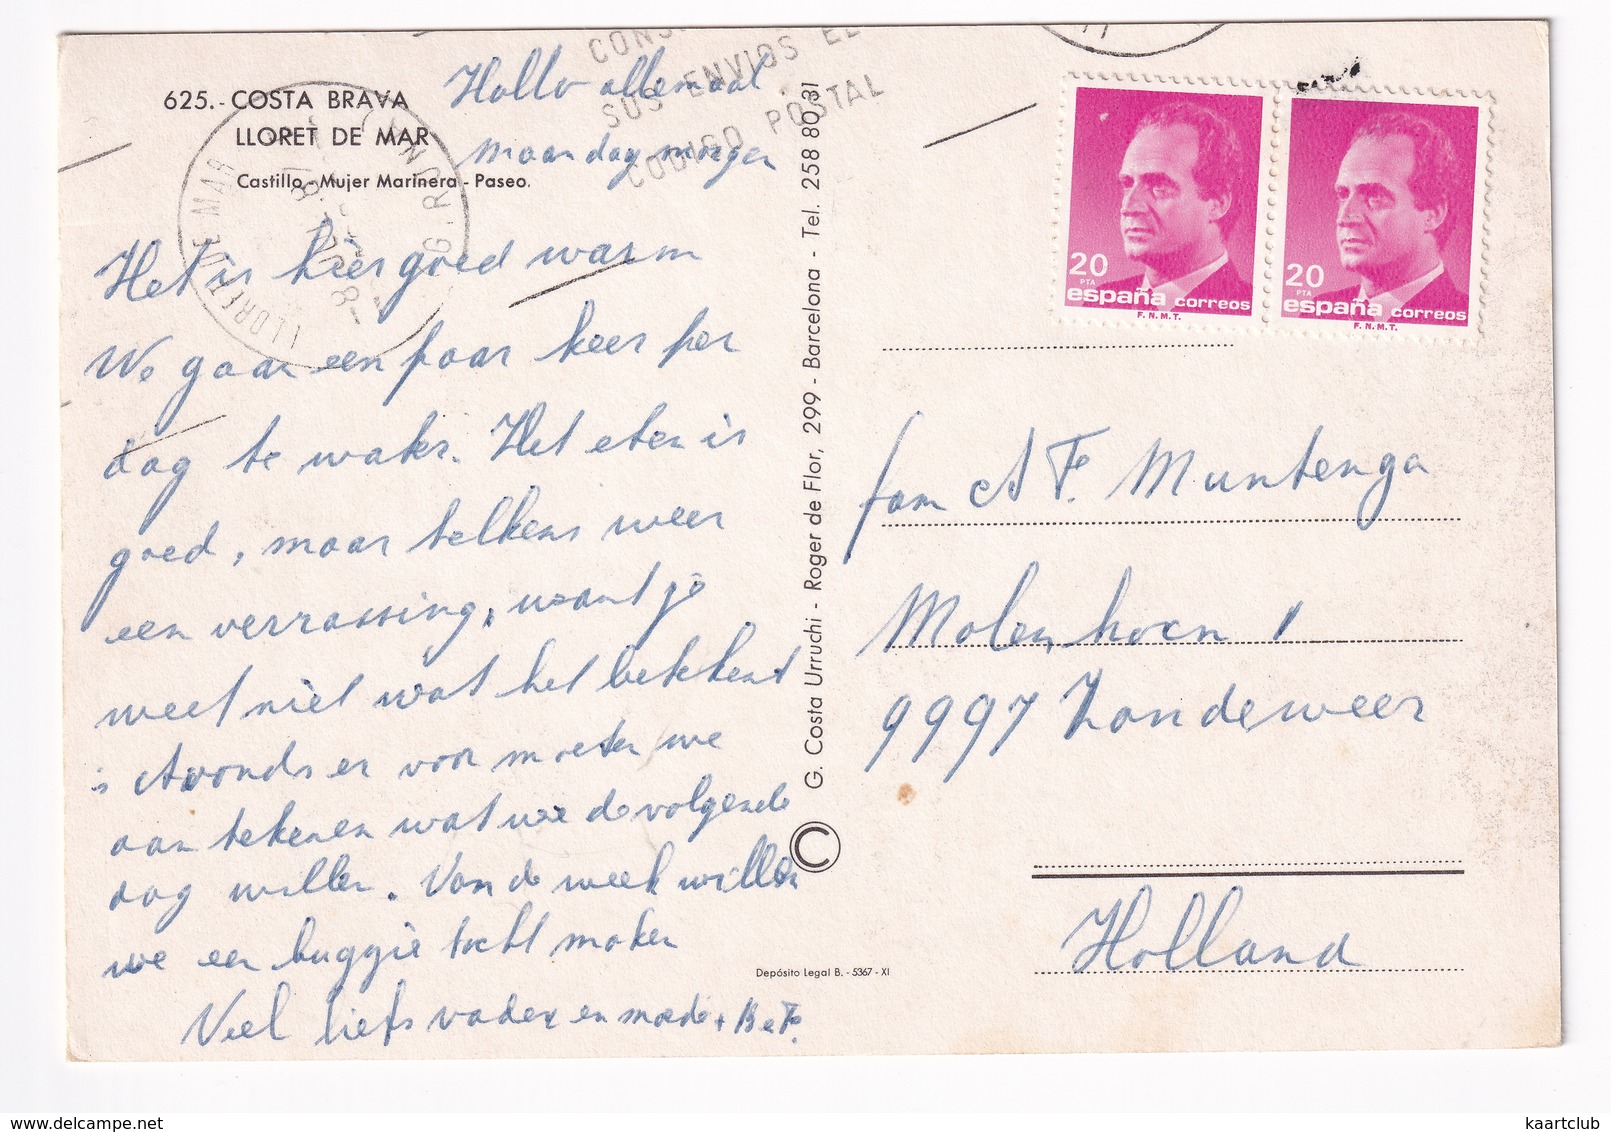 625.- COSTA BRAVA
LLORET DE MAR
Castillo - Mujer Marinera - Paseo.
Hallo allemaal
maandag morgen
Het is hier goed warm
We gaan een paar keer per
dag te water. Het eten is
goed, maar telkens weer
een verrassing, want je
weet niet wat het betekent
is Avonds er voor moeten we
aan tekenen wat we de volgende
dag willen. Van de week willen
we een buggie tocht maken
Veel liefs vader en moeder + B e F.
SUS ENVIOS EL
CODIGO POSTAL
LLORET DE MAR
G. Costa Urruchi - Roger de Flor, 299 - Barcelona - Tel. 258 80 31
Depósito Legal B. - 5367 - XI
©
20
PTA
españa correos
F.N.M.T.
20
PTA
españa correos
F.N.M.T.
fam A F. Muntenga
Molenhorn 1
9997 Zandeweer
Holland
kaartclub